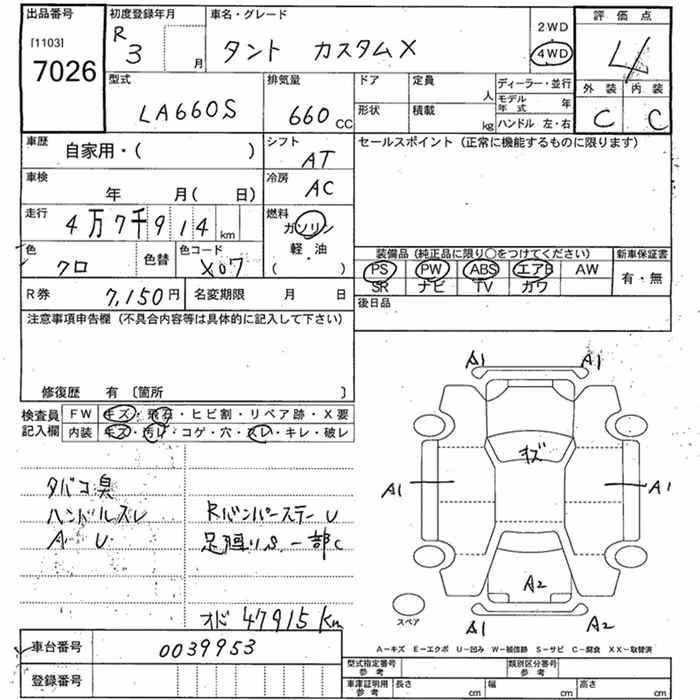 出品番号 初度登録年月 車名・グレード 評価点
[1103] 7026 R 3 月 タント カスタムX 2WD 4WD 4
型式 排気量 ドア 定員 人 ディーラー・並行 外装 内装
LA660S 660 CC 形状 積載 kg モデル年式 年 C C
ハンドル 左・右
車歴 自家用・( ) シフト AT セールスポイント (正常に機能するものに限ります)
車検 年 月( 日) 冷房 AC
走行 4万7千914 km 燃料 ガソリン 軽・油 ( )
色 クロ 色替 色コード X07 装備品 (純正品に限り○をつけてください) 新車保証書
PS PW ABS エアB AW 有・無
SR ナビ TV カワ
R券 7,150円 名変期限 月 日 後日品
注意事項申告欄 (不具合内容等は具体的に記入して下さい)
修復歴 有 〔箇所 〕
検査員 FW キズ・飛石・ヒビ割・リペア跡・X要
記入欄 内装 キズ・汚レ・コゲ・穴・スレ・キレ・破レ
S1 A1
キズ
A1 A1
A2
S1 A2
スペア
タバコ臭
ハンドルスレ RバンパーステーU
A U 足廻りS 一部C
オド 47915km
A-キズ E-エクボ U-凹み W-補修跡 S-サビ C-腐食 XX-取替済
車台番号 0039953
登録番号
型式指定番号 参考 類別区分番号 参考
車庫証明用 参考 長さ cm 幅 cm 高さ cm